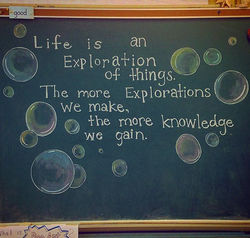 good
Life is an
Exploration
of things.
The more Explorations
we make,
the more knowledge
we gain.